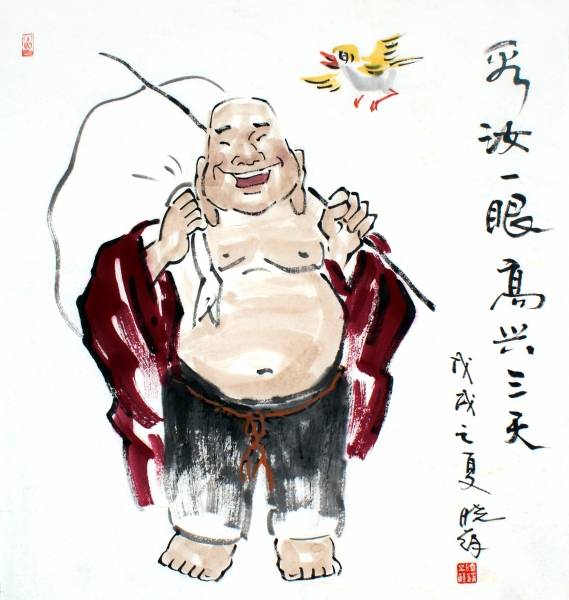 看汝一眼高兴三天
戊戌之夏 晓